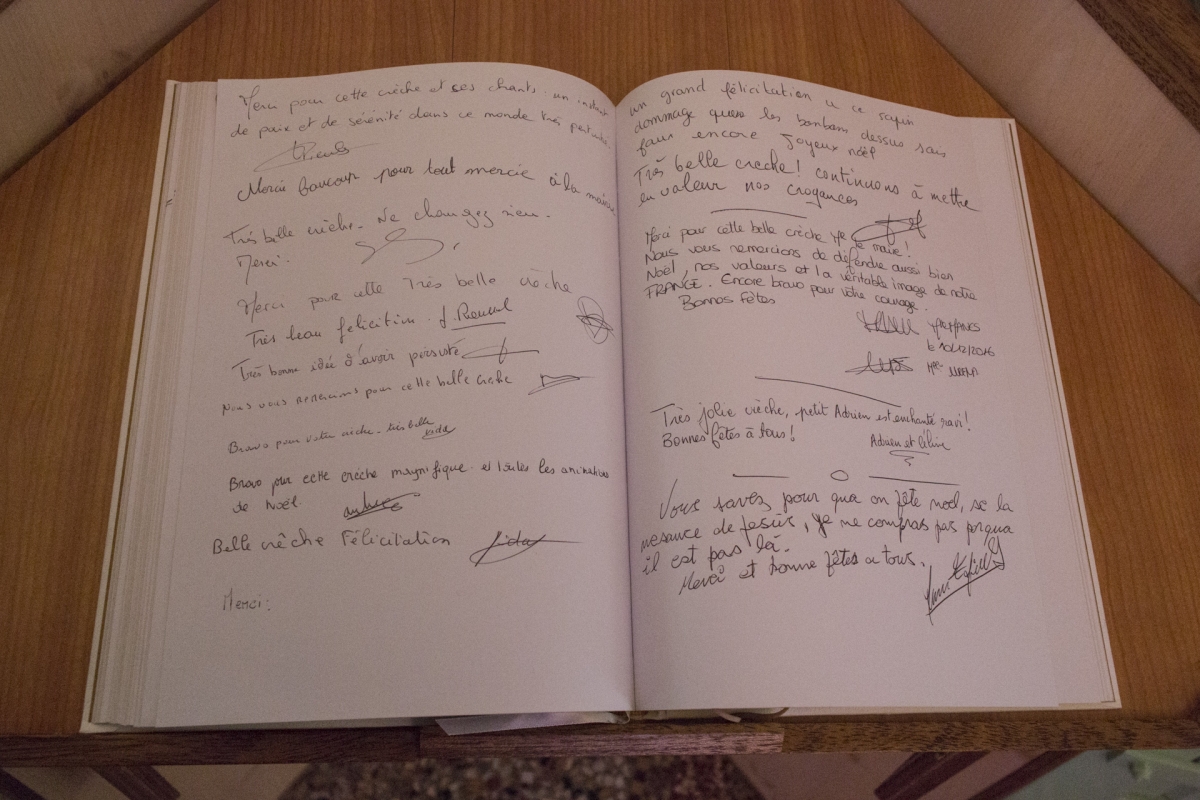 Merci pour cette crèche et ses chants : un instant
de paix et de sérénité dans ce monde très perturbé.
Mercie baucoup pour tout mercie à la mairie
Très belle crèche. Ne changez rien.
Merci.
Merci pour cette Très belle crèche
Très beau félicition.
Très bonne idée d'avoir persisté
Nous vous remercions pour cette belle crèche
Bravo pour votre crèche. très belle
Bravo pour cette crèche magnifique et toutes les animations
de Noël.
Belle crèche Félicitation
Merci.
un grand félicitation a ce sapin
dommage quese les bonbons dessus sais
faux encore Joyeux noël
Très belle creche! continuons à mettre
en valeur nos croyances
Merci pour cette belle crèche Mr le maire!
Nous vous remercions de défendre aussi bien
Noël, nos valeurs et la véritable image de notre
FRANCE. Encore bravo pour votre courage.
Bonnes fêtes
le 10/12/2016
Très jolie crèche, petit Adrien est enchanté ravi!
Bonnes fêtes à tous!
Adrien et Céline
Vous savez pour qua on fête noel, se la
nesance de Jesús, ye ne compras pas porqua
il est pas là.
Merci et bonne fêtes a tous.